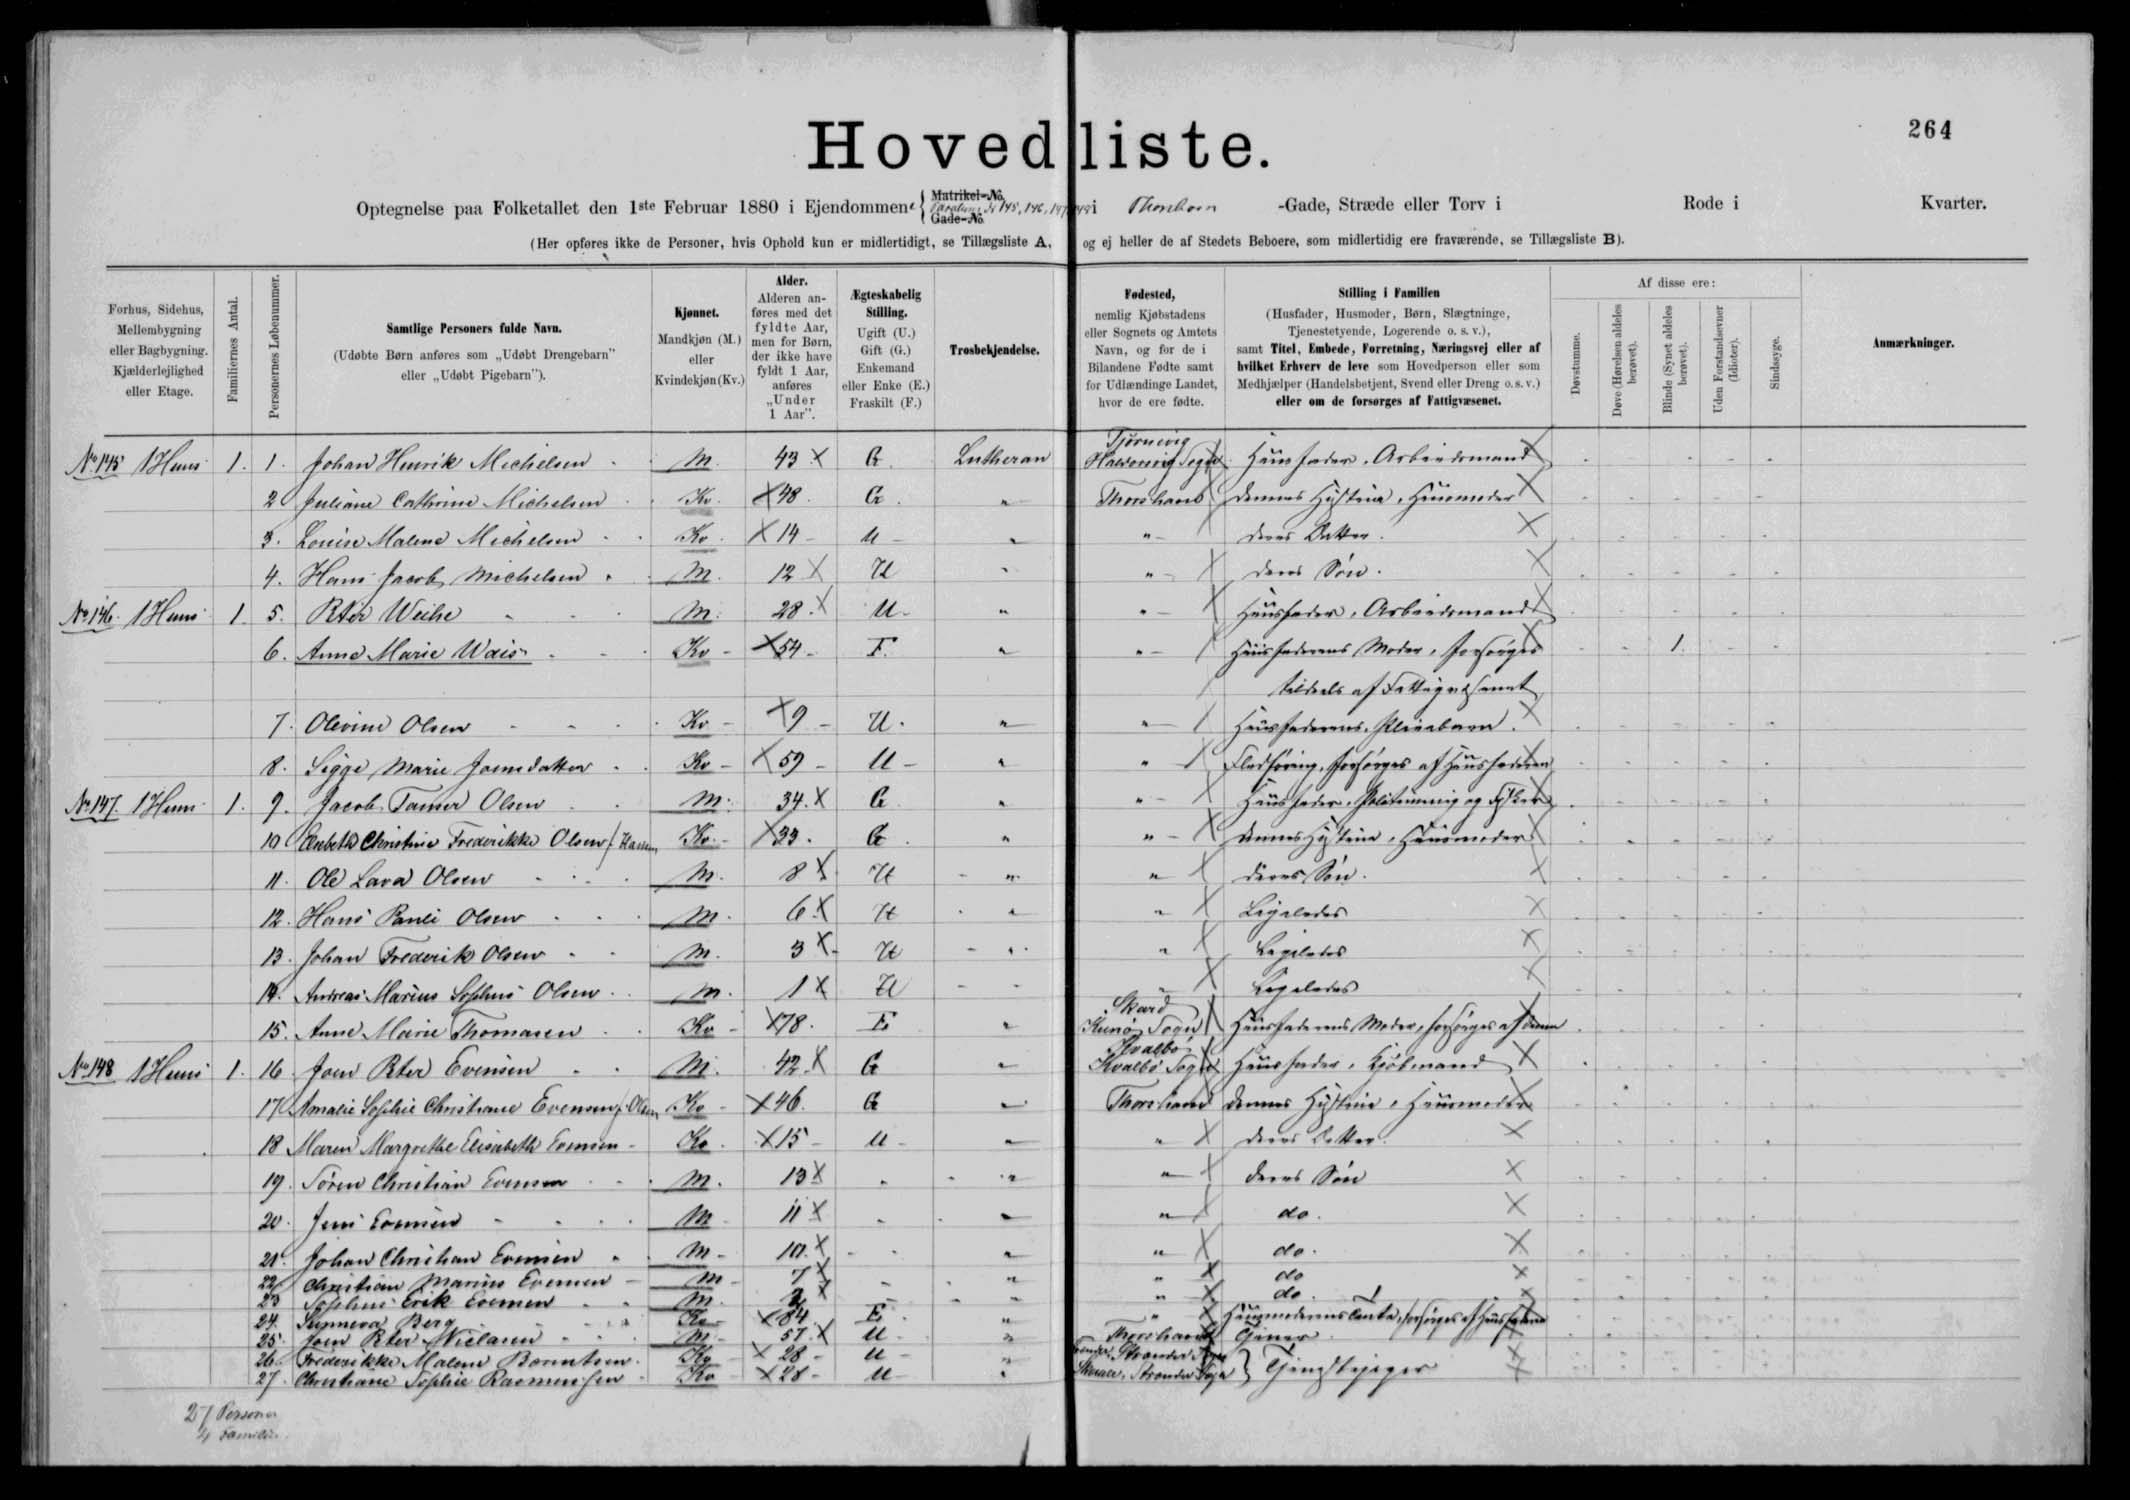 Hovedliste.
264
Optegnelse paa Folketallet den 1ste Februar 1880 i Ejendommene { Matrikel-No. Gade-No. 145, 146, 147, 148 i Thorshavn -Gade, Stræde eller Torv i Rode i Kvarter.
(Her opføres ikke de Personer, hvis Ophold kun er midlertidigt, se Tillægsliste A, og ej heller de af Stedets Beboere, som midlertidig ere fraværende, se Tillægsliste B).
Forhus, Sidehus, Mellembygning eller Bagbygning. Kjælderlejlighed eller Etage.
Familiernes Antal.
Personernes Løbenummer.
Samtlige Personers fulde Navn.
(Udøbte Børn anføres som „Udøbt Drengebarn" eller „Udøbt Pigebarn").
Kjønnet.
Mandkjøn (M.) eller Kvindekjøn (Kv.)
Alder.
Alderen anføres med det fyldte Aar, men for Børn, der ikke have fyldt 1 Aar, anføres „Under 1 Aar".
Ægteskabelig Stilling.
Ugift (U.) Gift (G.) Enkemand eller Enke (E.) Fraskilt (F.)
Trosbekjendelse.
Fødested,
nemlig Kjøbstadens eller Sognets og Amtets Navn, og for de i Bilandene Fødte samt for Udlændinge Landet, hvor de ere fødte.
Stilling i Familien
(Husfader, Husmoder, Børn, Slægtninge, Tjenestetyende, Logerende o. s. v.),
samt Titel, Embede, Forretning, Næringsvej eller af hvilket Erhverv de leve som Hovedperson eller som Medhjælper (Handelsbetjent, Svend eller Dreng o. s. v.) eller om de forsørges af Fattigvæsenet.
Af disse ere:
Døvstumme.
Døve (Hørelsen aldeles berøvet).
Blinde (Synet aldeles berøvet).
Uden Forstandsevner (Idioter).
Sindssyge.
Anmærkninger.
No 145 1 Huus 1. 1. Johan Henrik Michelsen M. 43 X G. Lutheran Tjørnevig Sogn Huusfader, Arbeidsmand X
2 Juliane Cathrine Michelsen Kv. X 48. G. " Thorshavn dennes Hustrue, Huusmoder X
3. Louise Malene Michelsen Kv. X 14 U " " deres Datter. X
4. Hans Jacob Michelsen M. 12 X U " " X deres Søn. X
No 146. 1 Huus 1. 5. Peter Weihe M. 28 X U. " " X Huusfader, Arbeidsmand X
6. Anne Marie Wais Kv X 54 F. " " Huusfaderens Moder, forsørges X 1.
tildeels af Fattigvæsenet
7. Olevine Olsen Kv X 9 U. " " Huusfaderens Pleiebarn. X
8. Sigge Marie Joensdatter Kv X 59 U " " forsørges af Huusfaderen
No 147. 1 Huus 1. 9. Jacob Olsen M. 34. X G " " X Huusfader, og Fisker
10 Christine Frederikke Olsen f. Hansen Kv. X 33. G " " X dennes Hustrue, Huusmoder
11. Ole Lava Olsen M. 8 X U " " X deres Søn. X
12. Hans Pauli Olsen M. 6 X U " " X Ligeledes X
13. Johan Frederik Olsen M. 3 X U " " X Ligeledes X
14. Andreas Marius Sophus Olsen M. 1 X U " X Ligeledes X
15. Anne Marie Thomasen Kv X 78. E " Skard Kunø Sogn X Huusfaderens Moder, forsørges af denne
No 148 1 Huus 1. 16. Joen Peter Evensen M. 42. X G " Hvalbø Kvalbø Sogn Huusfader, Kjøbmand X
17. Amalie Sophie Christiane Evensen f. Olsen Kv X 46. G " Thorshavn dennes Hustrue, Huusmoder
18 Maren Margrethe Elisabeth Evensen Kv. X 15 U " " X deres Datter. X
19. Søren Christian Evensen M. 13 X " " " X deres Søn X
20. Jens Evensen M 11 X " " " X do. X
21. Johan Christian Evensen M 10. X " " " X do. X
22. Christian Marius Evensen M 7 X " " " X do X
23 Sophus Erik Evensen M. 2 X " " " X do. X
24. Sunneva Berg Kv X 84 E. " " X Huusmoderens Tante, forsørges af Huusfaderen
25. Joen Peter Nielasen M 57. X U " Thorshavn X Tjener X
26 Frederikke Malene Berentsen Kv X 28 U " Strander Sogn } Tjenestepiger X
27. Christiane Sophie Rasmussen Kv X 28 U " Strander Sogn X
27 Personer
4 Familier.